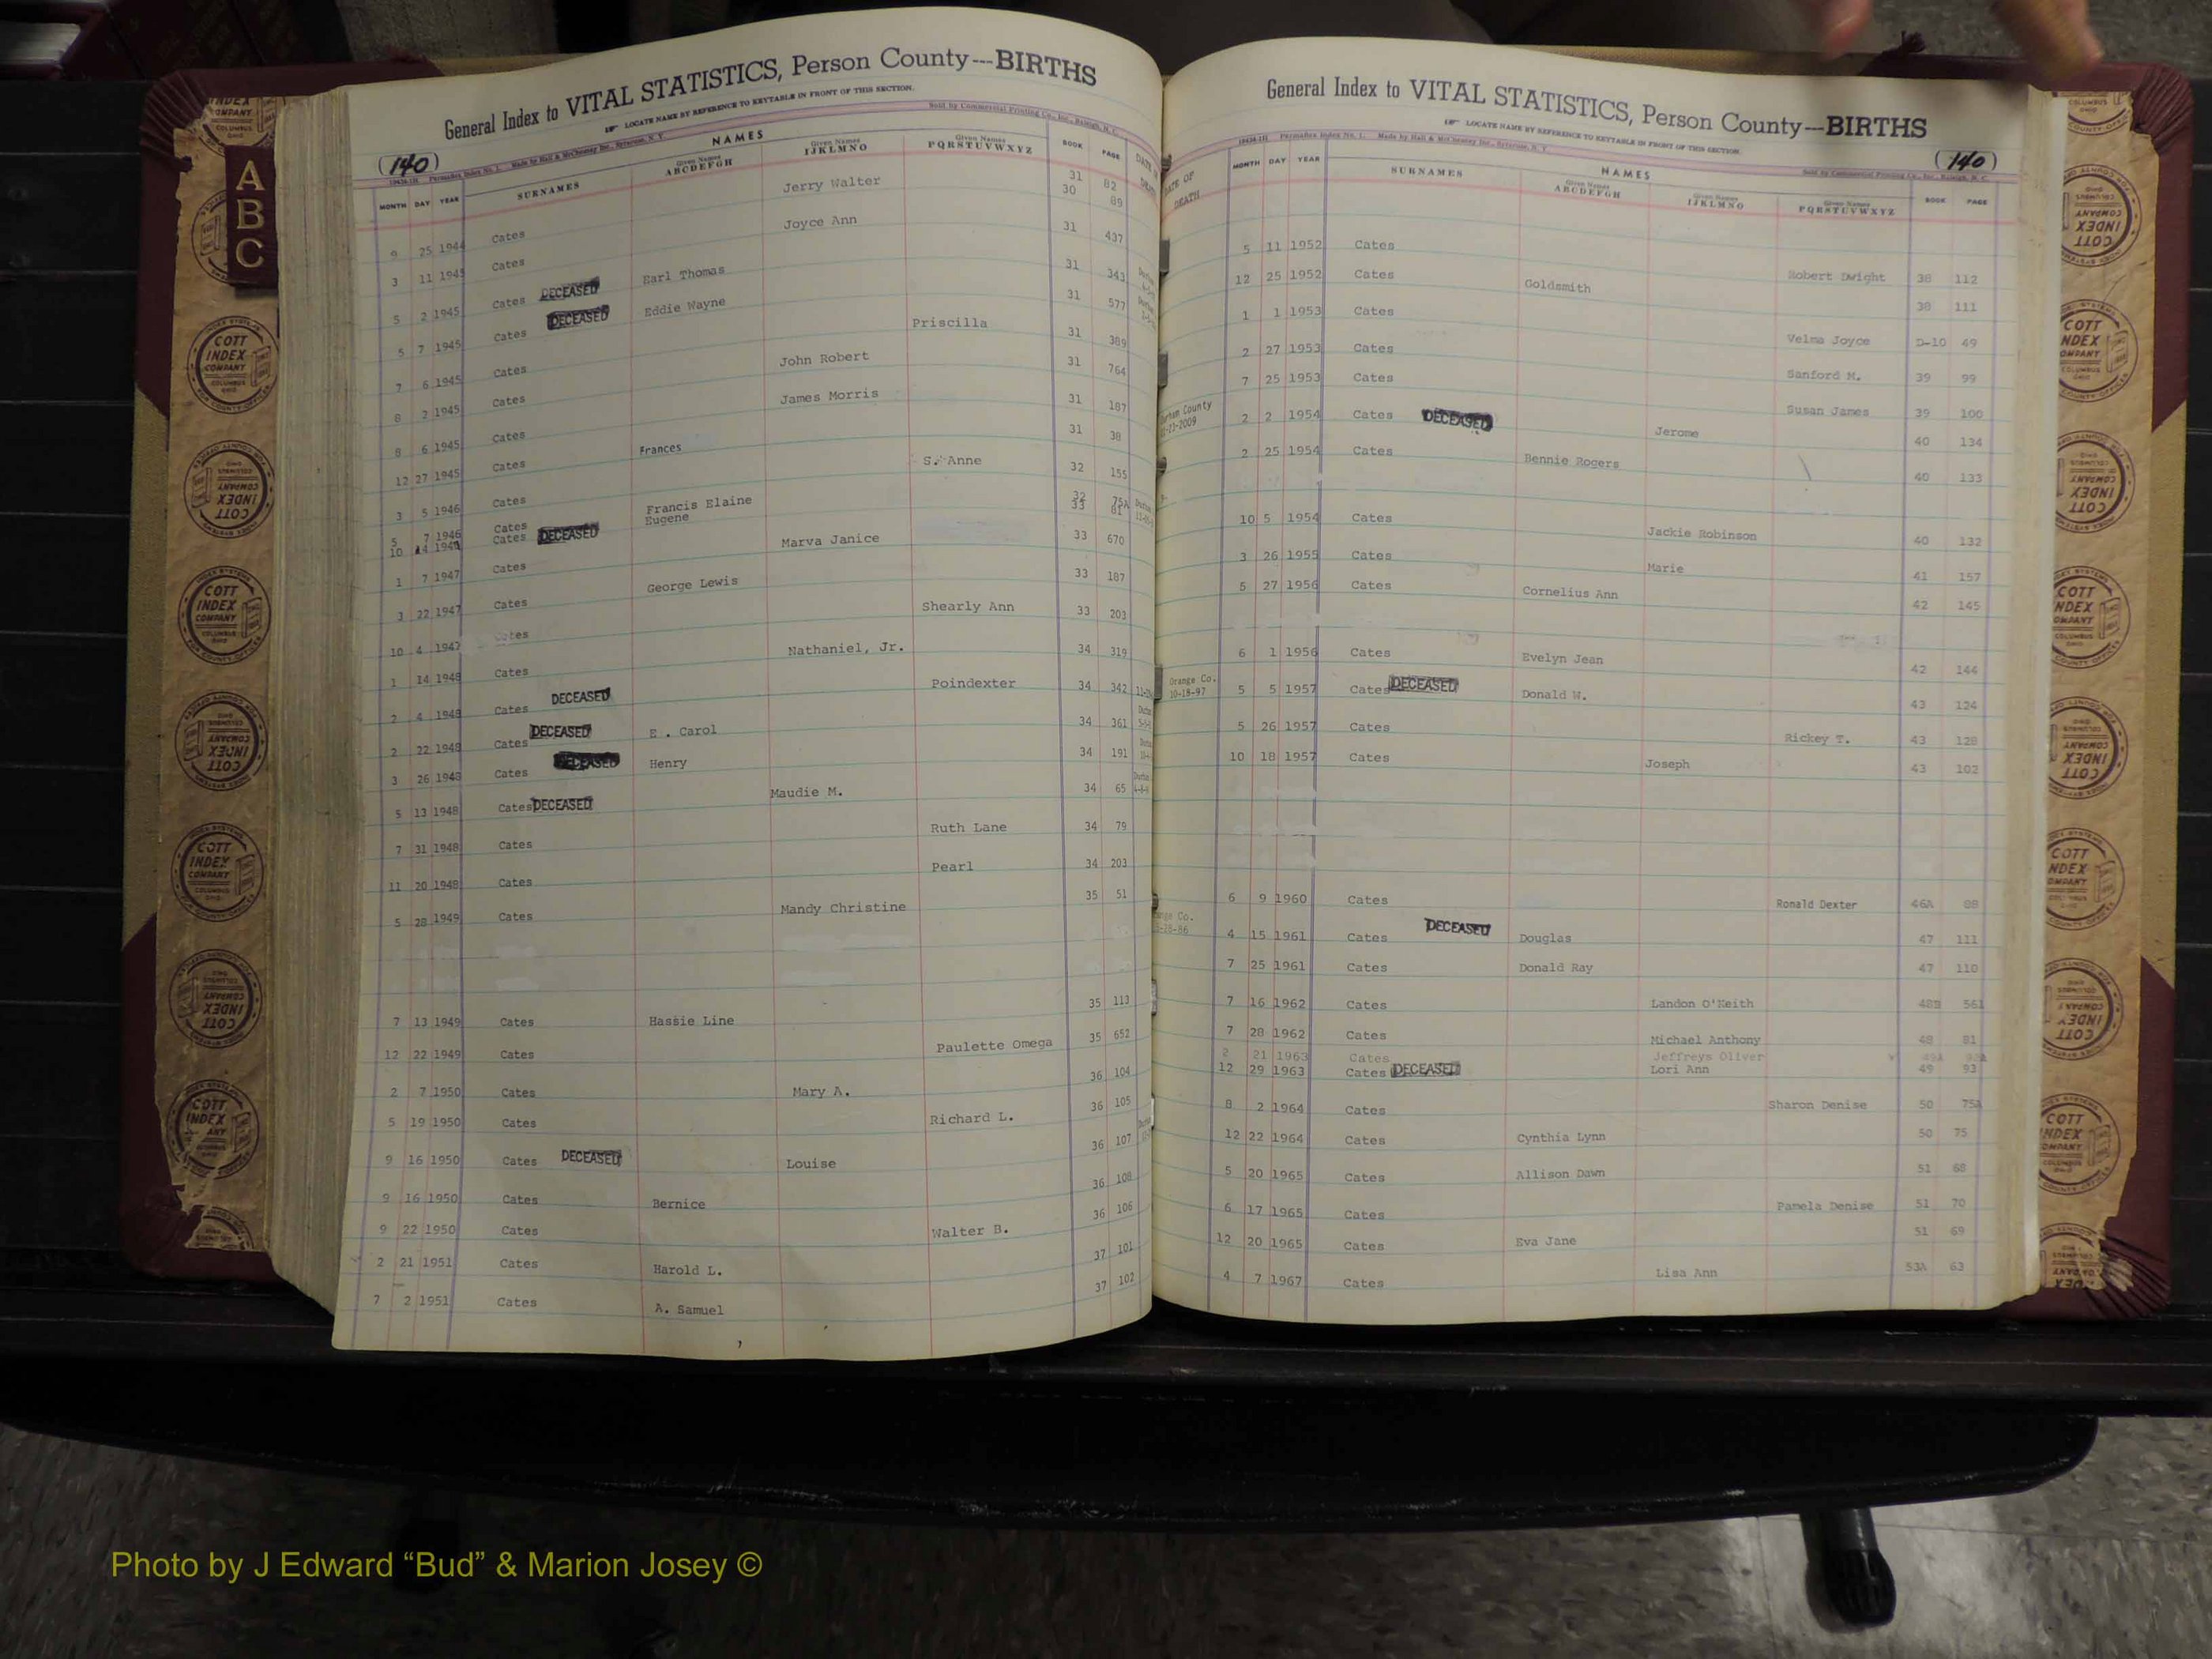 General Index to VITAL STATISTICS, Person County---BIRTHS
LOCATE NAME BY REFERENCE TO KEYTABLE IN FRONT OF THIS SECTION.
(140)
Sold by Commercial Printing Co., Inc., Raleigh, N. C.
NAMES
MONTH DAY YEAR SURNAMES Given Names ABCDEFGH Given Names IJKLMNO Given Names PQRSTUVWXYZ BOOK PAGE
9 25 1944 Cates Jerry Walter 31 82
3 11 1945 Cates Joyce Ann 30 89
5 2 1945 Cates DECEASED Earl Thomas 31 437
5 7 1945 Cates DECEASED Eddie Wayne 31 343
7 6 1945 Cates Priscilla 31 577
8 2 1945 Cates John Robert 31 389
8 6 1945 Cates James Morris 31 764
12 27 1945 Cates Frances 31 187
3 5 1946 Cates S. Anne 31 38
5 7 1946 Cates Francis Elaine 32 155
10 14 Cates DECEASED Eugene 32 75A
33 81
1 7 1947 Cates Marva Janice 33 670
3 22 1947 Cates George Lewis 33 187
10 4 1947 Shearly Ann 33 203
1 14 1948 Cates Nathaniel, Jr. 34 319
2 4 1948 Cates DECEASED Poindexter 34 342
2 22 1948 Cates DECEASED E. Carol 34 361
3 26 1948 Cates DECEASED Henry 34 191
5 13 1948 Cates DECEASED Maudie M. 34 65
7 31 1948 Cates Ruth Lane 34 79
11 20 1948 Cates Pearl 34 203
5 28 1949 Cates Mandy Christine 35 51
7 13 1949 Cates Hassie Line 35 113
12 22 1949 Cates Paulette Omega 35 652
2 7 1950 Cates Mary A. 36 104
5 19 1950 Cates Richard L. 36 105
9 16 1950 Cates DECEASED Louise 36 107
9 16 1950 Cates Bernice 36 108
9 22 1950 Cates Walter B. 36 106
2 21 1951 Cates Harold L. 37 101
7 2 1951 Cates A. Samuel 37 102
General Index to VITAL STATISTICS, Person County---BIRTHS
LOCATE NAME BY REFERENCE TO KEYTABLE IN FRONT OF THIS SECTION.
(140)
DATE OF DEATH
NAMES
MONTH DAY YEAR SURNAMES Given Names ABCDEFGH Given Names IJKLMNO Given Names PQRSTUVWXYZ BOOK PAGE
5 11 1952 Cates Robert Dwight 38 112
12 25 1952 Cates Goldsmith 38 111
1 1 1953 Cates Velma Joyce D-10 49
2 27 1953 Cates Sanford M. 39 99
7 25 1953 Cates Susan James 39 100
2 2 1954 Cates DECEASED Jerome 40 134
2 25 1954 Cates Bennie Rogers 40 133
10 5 1954 Cates Jackie Robinson 40 132
3 26 1955 Cates Marie 41 157
5 27 1956 Cates Cornelius Ann 42 145
6 1 1956 Cates Evelyn Jean 42 144
Orange Co. 10-18-97 5 5 1957 Cates DECEASED Donald W. 43 124
5 26 1957 Cates Rickey T. 43 128
10 18 1957 Cates Joseph 43 102
6 9 1960 Cates Ronald Dexter 46A 88
4 15 1961 Cates DECEASED Douglas 47 111
7 25 1961 Cates Donald Ray 47 110
7 16 1962 Cates Landon O'Keith 48B 561
7 28 1962 Cates Michael Anthony 48 81
2 21 1963 Cates Jeffreys Oliver 49A
12 29 1963 Cates DECEASED Lori Ann 49 93
8 2 1964 Cates Sharon Denise 50 75A
12 22 1964 Cates Cynthia Lynn 50 75
5 20 1965 Cates Allison Dawn 51 68
6 17 1965 Cates Pamela Denise 51 70
12 20 1965 Cates Eva Jane 51 69
4 7 1967 Cates Lisa Ann 53A 63
A
B
C
COTT
INDEX
COMPANY
Photo by J Edward “Bud” & Marion Josey ©